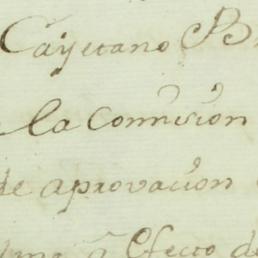 Cayetano B
la Comision
de aprovacion
à Efecto de